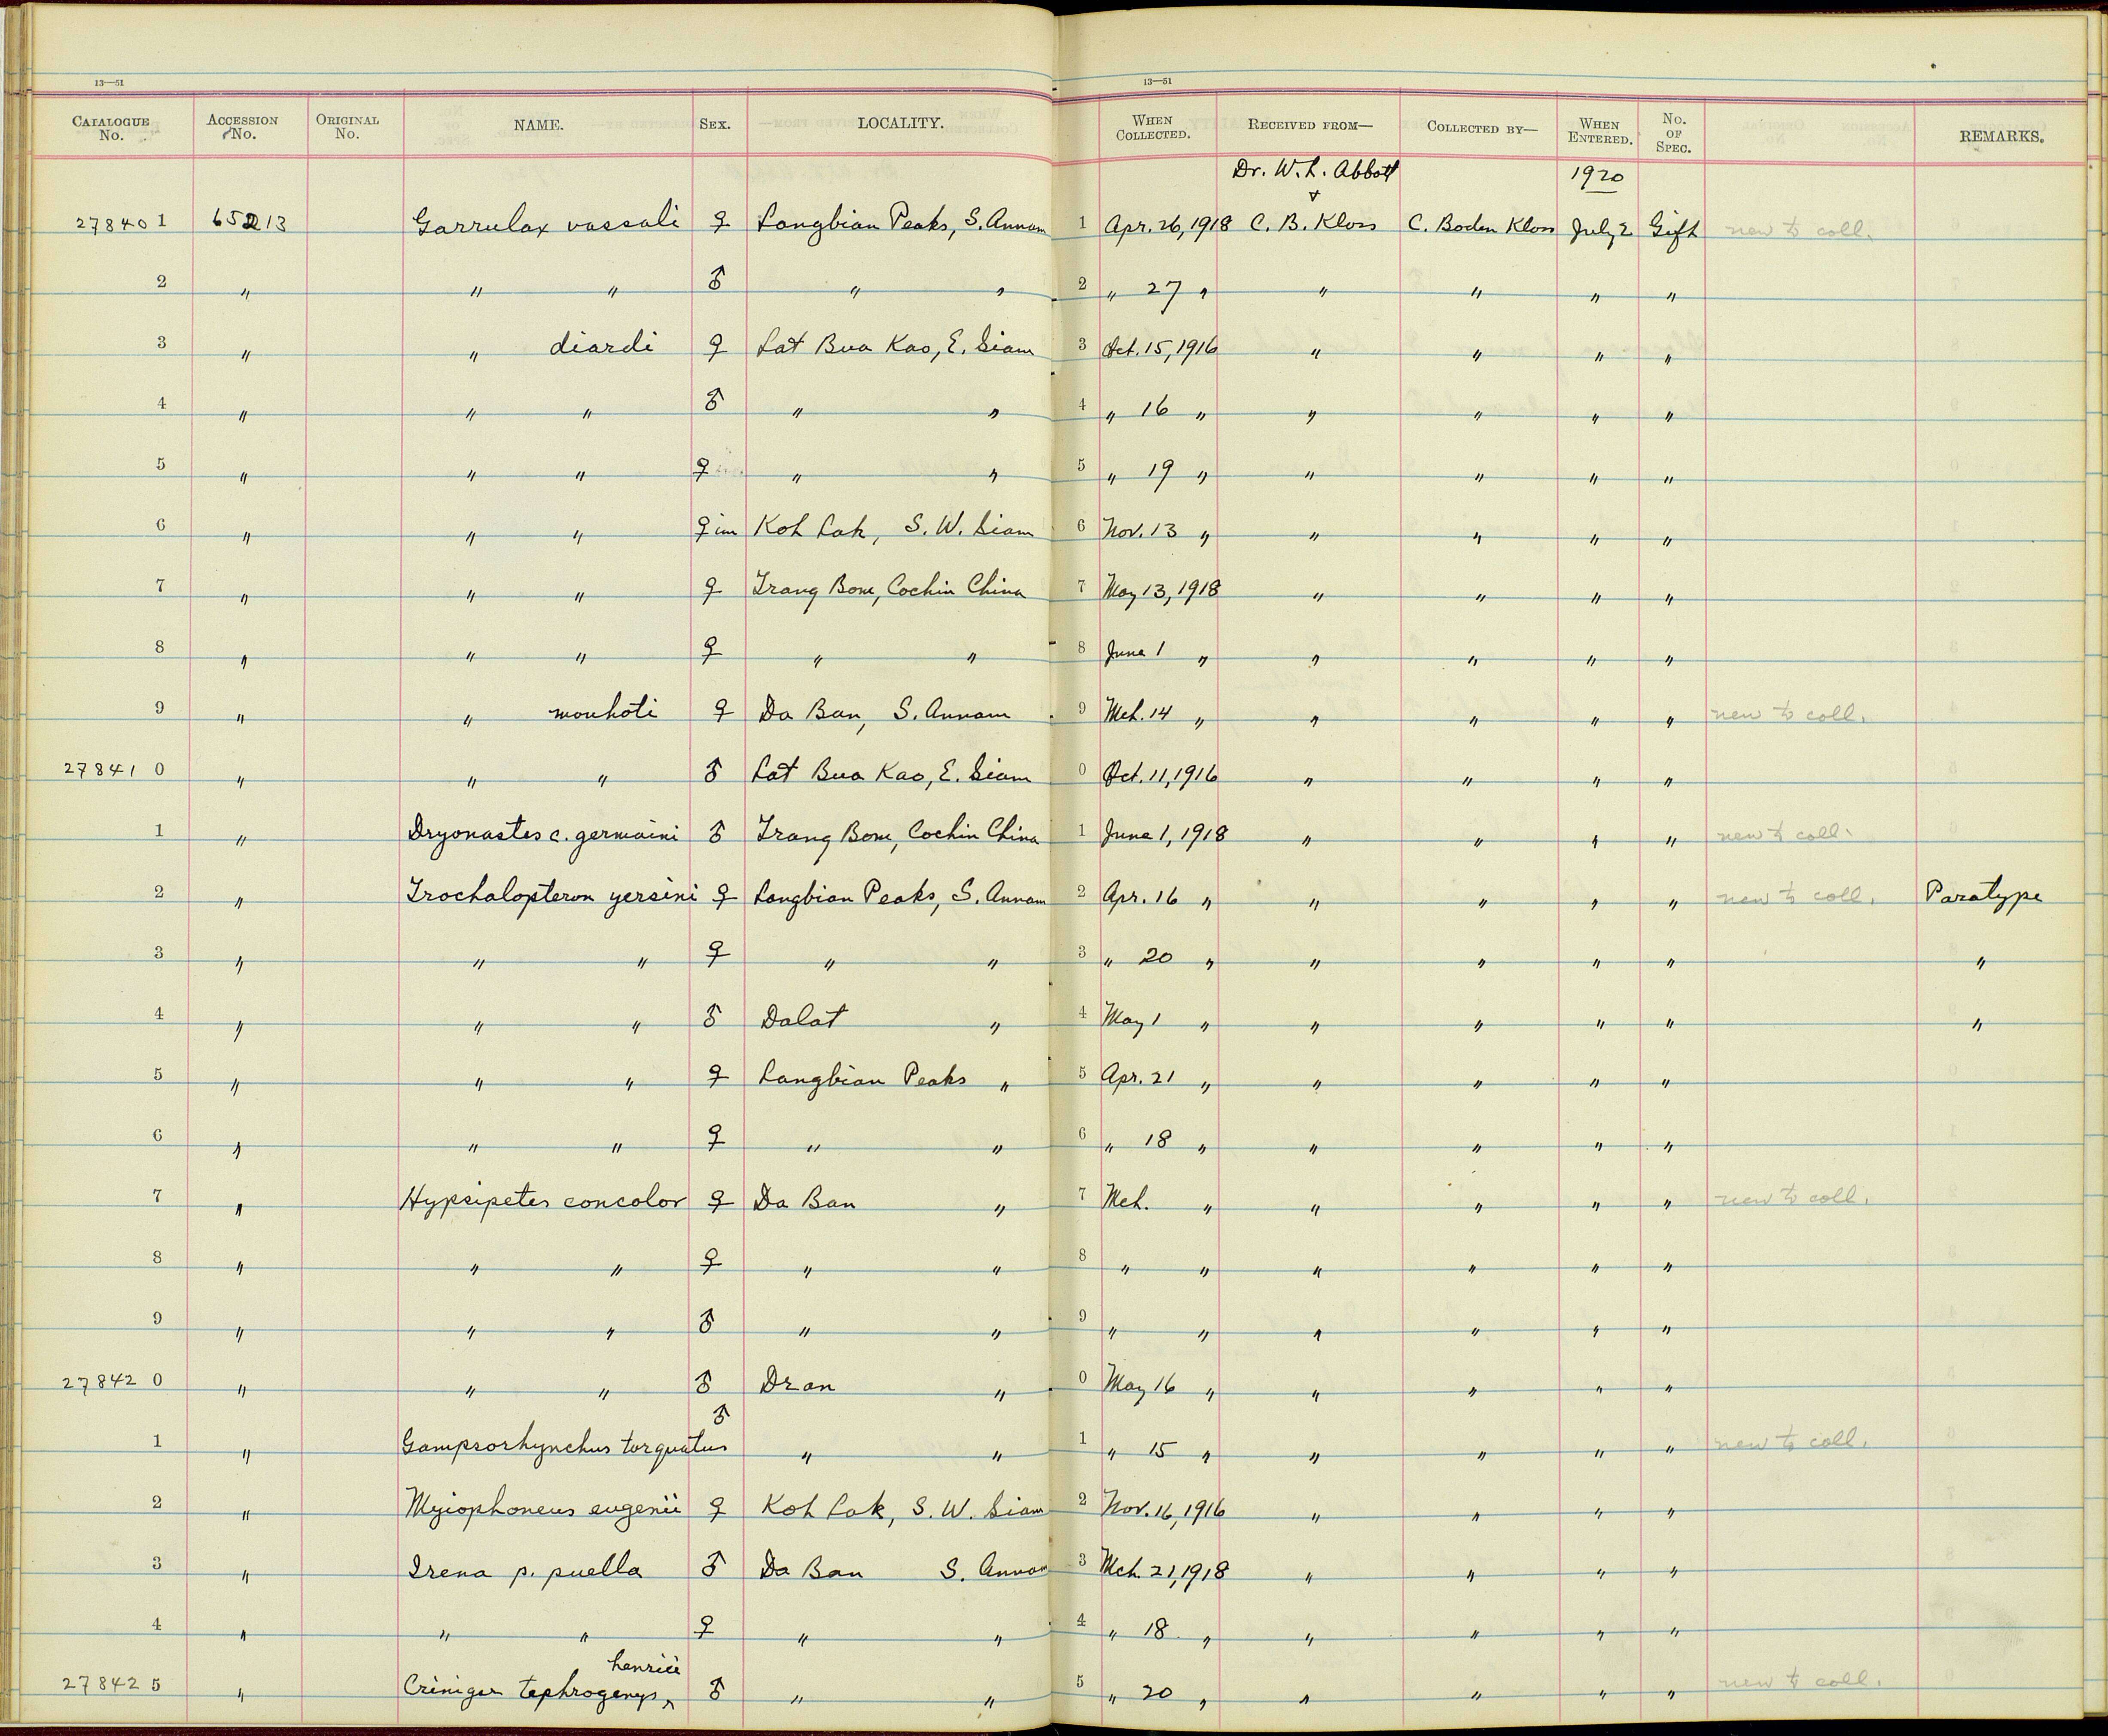 13—51 13—51
CATALOGUE No. ACCESSION No. ORIGINAL No. NAME. SEX. LOCALITY. WHEN COLLECTED. RECEIVED FROM— COLLECTED BY— WHEN ENTERED. No. OF SPEC. REMARKS.
Dr. W. L. Abbott 1920
&
278401 65213 Garrulax vassali ♀ Langbian Peaks, S. Annam 1 Apr. 26, 1918 C. B. Kloss C. Boden Kloss July 2 Gift new to coll.
2 " " " ♂ " " 2 " 27 " " " " "
3 " " diardi ♀ Lat Bua Kao, E. Siam 3 Oct. 15, 1916 " " " "
4 " " " ♂ " " 4 " 16 " " " " "
5 " " " ♀ " " 5 " 19 " " " " "
6 " " " ♀ im Koh Lak, S. W. Siam 6 Nov. 13 " " " " "
7 " " " ♀ Trang Bom, Cochin China 7 May 13, 1918 " " " "
8 " " " ♀ " " 8 June 1 " " " " "
9 " " mouhoti ♀ Da Ban, S. Annam 9 Mch. 14 " " " " " new to coll.
278410 " " " ♂ Lat Bua Kao, E. Siam 0 Oct. 11, 1916 " " " "
1 " Dryonastes c. germaini ♂ Trang Bom, Cochin China 1 June 1, 1918 " " " " new to coll.
2 " Trochalopteron yersini ♀ Langbian Peaks, S. Annam 2 Apr. 16 " " " " " new to coll. Paratype
3 " " " ♀ " " 3 " 20 " " " " " "
4 " " " ♂ Dalat " 4 May 1 " " " " " "
5 " " " ♀ Langbian Peaks " 5 Apr. 21 " " " " "
6 " " " ♀ " " 6 " 18 " " " " "
7 " Hypsipetes concolor ♀ Da Ban " 7 Mch. " " " " " new to coll.
8 " " " ♀ " " 8 " " " " " "
9 " " " ♂ " " 9 " " " " " "
278420 " " " ♂ Dran " 0 May 16 " " " " "
♂
1 " Gampsorhynchus torquatus " " 1 " 15 " " " " " new to coll.
2 " Myiophoneus eugenii ♀ Koh Lak, S. W. Siam 2 Nov. 16, 1916 " " " "
3 " Irena p. puella ♂ Da Ban S. Annam 3 Mch. 21, 1918 " " " "
4 " " " ♀ " " 4 " 18 " " " " "
henrici
278425 " Criniger tephrogenys ‸ ♂ " " 5 " 20 " " " " " new to coll.